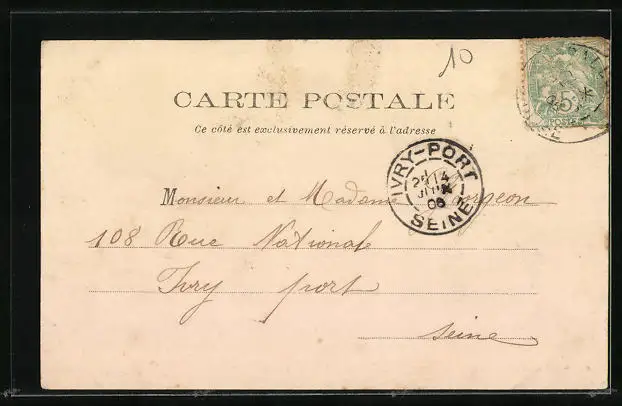 10
CARTE POSTALE
Ce côté est exclusivement réservé à l'adresse
IVRY-PORT
14
JUIN
SEINE
5
POSTE
Monsieur et Madame
108 Rue National
Ivry port
Seine